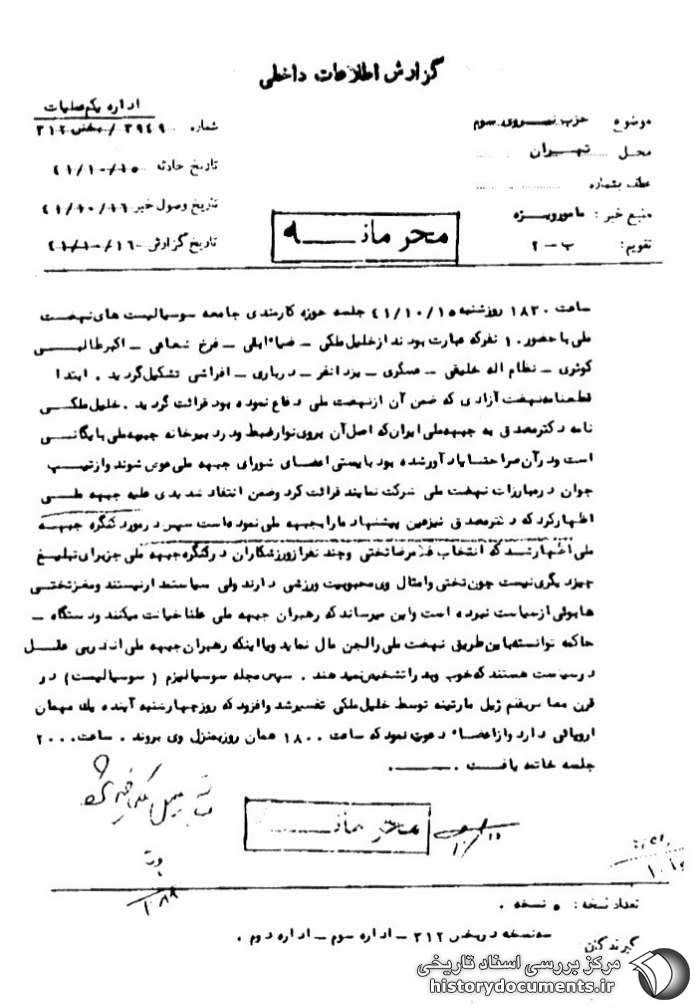 گزارش اطلاعات داخلی
اداره یکم عملیات
موضوع حزب نیروی سوم
شماره ۳۹۴۹ / بخش ۳۱۲
محل تهران
تاریخ حادثه ۴۱/۱۰/۱۵
عطف بشماره
تاریخ وصول خبر ۴۱/۱۰/۱۶
منبع خبر : مامور ویژه
تاریخ گزارش ۴۱/۱۰/۱۶
تقویم : ب - ۲
محرمانه
ساعت ۱۸۳۰ روز شنبه ۴۱/۱۰/۱۵ جلسه حوزه کارمندی جامعه سوسیالیست های نهضت
ملی با حضور ۱۰ نفر که عبارت بودند از خلیل ملکی - ضیاء ابقی - فرخ شعاعی - اکبر طالبی
کوثری - نظام اله خلیقی - عسگری - یزدانفر - درباری - افراشی تشکیل گردید . ابتدا
قطعنامه نهضت آزادی که ضمن آن از نهضت ملی دفاع نموده بود قرائت گردید . خلیل ملکی
نامه دکتر مصدق به جبهه ملی ایران که اصل آن بروی نوار ضبط و در دبیرخانه جبهه ملی بایگانی
است و در آن صراحتا یادآور شده بود بایستی اعضای شورای جبهه ملی عوض شوند و از تیپ
جوان در مبارزات نهضت ملی شرکت نمایند قرائت کرد و ضمن انتقاد شدیدی علیه جبهه ملی
اظهار کرد که دکتر مصدق نیز عین پیشنهاد ما را بجبهه ملی نموده است سپس در مورد کنگره جبهه
ملی اظهار شد که انتخاب غلامرضا تختی و چند نفر از ورزشکاران در کنگره جبهه ملی جز برای تبلیغ
چیز دیگری نیست چون تختی و امثال وی محبوبیت ورزشی دارند ولی سیاستمدار نیستند و مغز تختی
ها بوئی از سیاست نبرده است و این میرساند که رهبران جبهه ملی علنا خیانت میکنند و دستگاه -
حاکمه توانسته باین طریق نهضت ملی را لجن مال نماید و یا اینکه رهبران جبهه ملی آنقدر بی عقل
در سیاست هستند که خوب و بد را تشخیص نمیدهند . سپس مجله سوسیالیزم ( سوسیالیست ) در
قرن معاصر بقلم ژیل مارتینه توسط خلیل ملکی تفسیر شد و افزود که روز چهارشنبه آینده یک مهمان
اروپائی دارد و از اعضاء دعوت نمود که ساعت ۱۸۰۰ همان روز بمنزل وی بروند . ساعت ۲۰۰۰
جلسه خاتمه یافت .
محرمانه
تعداد نسخه : ۵ نسخه .
سه نسخه در بخش ۳۱۲ - اداره سوم - اداره دوم .
گیرندگان
مرکز بررسی اسناد تاریخی
historydocuments.ir